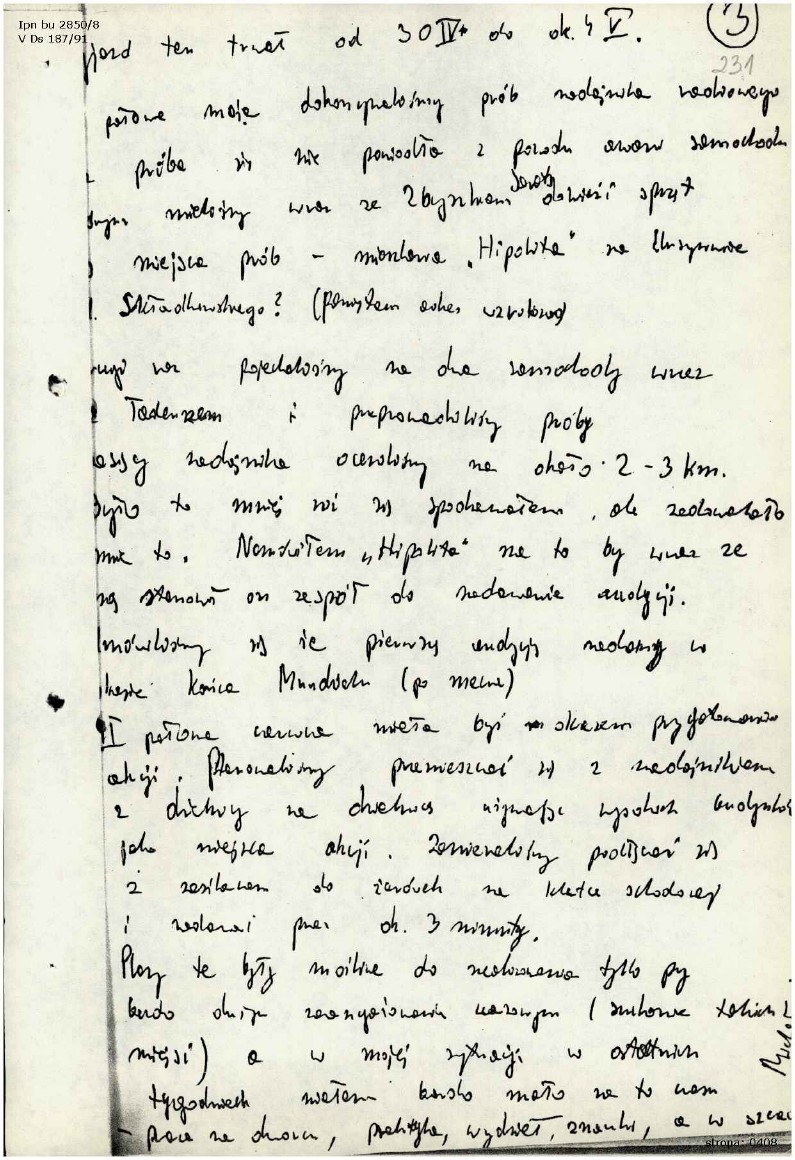 Ipn bu 2850/8
V Ds 187/91
3
231
jazd ten trwał od 30 IV do ok. 4 V.
połowa maja dokonywaliśmy prób nadajnika radiowego
próba się nie powiodła z powodu awarii samochodu
mieliśmy wraz ze Zbyszkiem dowieźć sprzęt
miejsca prób – mieszkania „Hipolita" na Ursynowie
. Składkowskiego? (Pamiętam adres wzrokowo)
raz pojechaliśmy na dwa samochody wraz
z Tadeuszem i przeprowadziliśmy próby
nadajnika oceniliśmy na około 2-3 km.
było to mniej niż się spodziewałem, ale zadowalało
mnie to. Namówiłem „Hipolita" na to by wraz ze
mną stanowił on zespół do nadawania audycji.
mówiliśmy się że pierwszą audycję nadamy w
czasie końca Mundialu (po meczu)
I połowa czerwca miała być okazem przygotowania
akcji. Planowaliśmy przemieszczać się z nadajnikiem
z dzielnicy na dzielnicę używając wysokich budynków
jako miejsca akcji. Zamierzaliśmy podłączać się
z zasilaniem do żarówek na klatce schodowej
i nadawać przez ok. 3 minuty.
Plany te były możliwe do realizowania tylko przy
bardzo dużym zaangażowaniu czasowym ( szukanie takich
miejsc) a w mojej sytuacji w ostatnich
tygodniach miałem bardzo mało na to czasu
– praca na dworcu, praktyka, wydział, znaczki, a w
strona: 0408